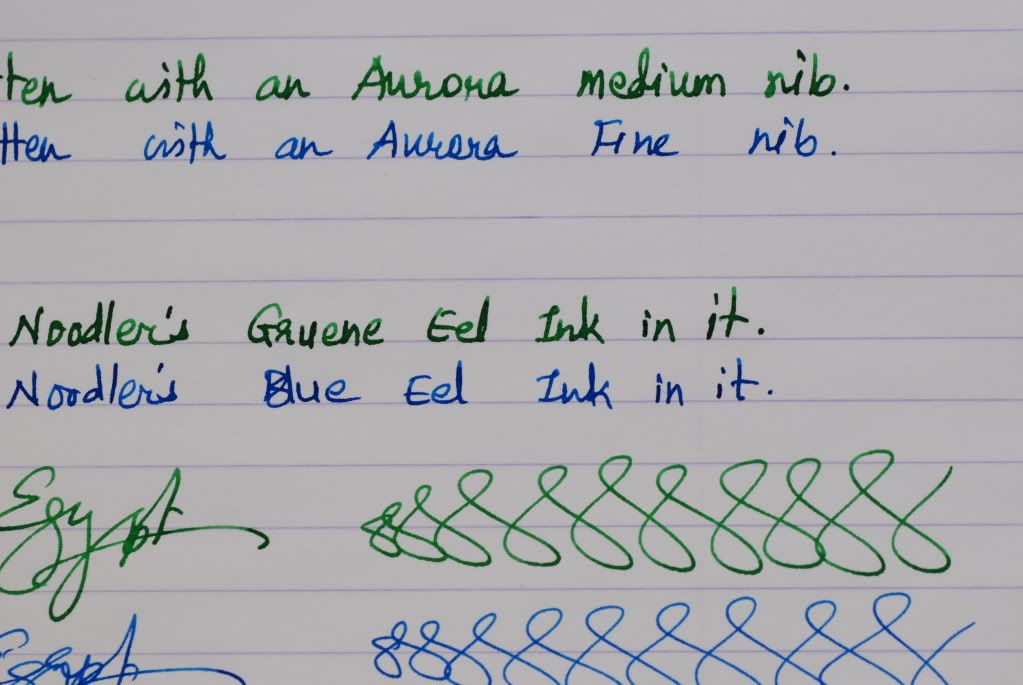 ten with an Aurora medium nib.
tten with an Aurora Fine nib.
Noodler's Gruene Eel Ink in it.
Noodler's Blue Eel Ink in it.
Egypt
Egypt